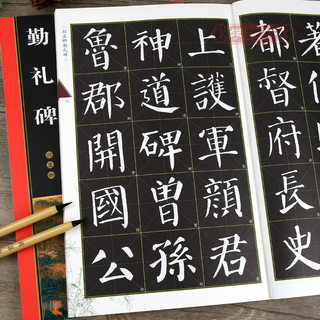 都督府長史
上護軍顏君
神道碑曾孫
魯郡開國公
勤礼碑